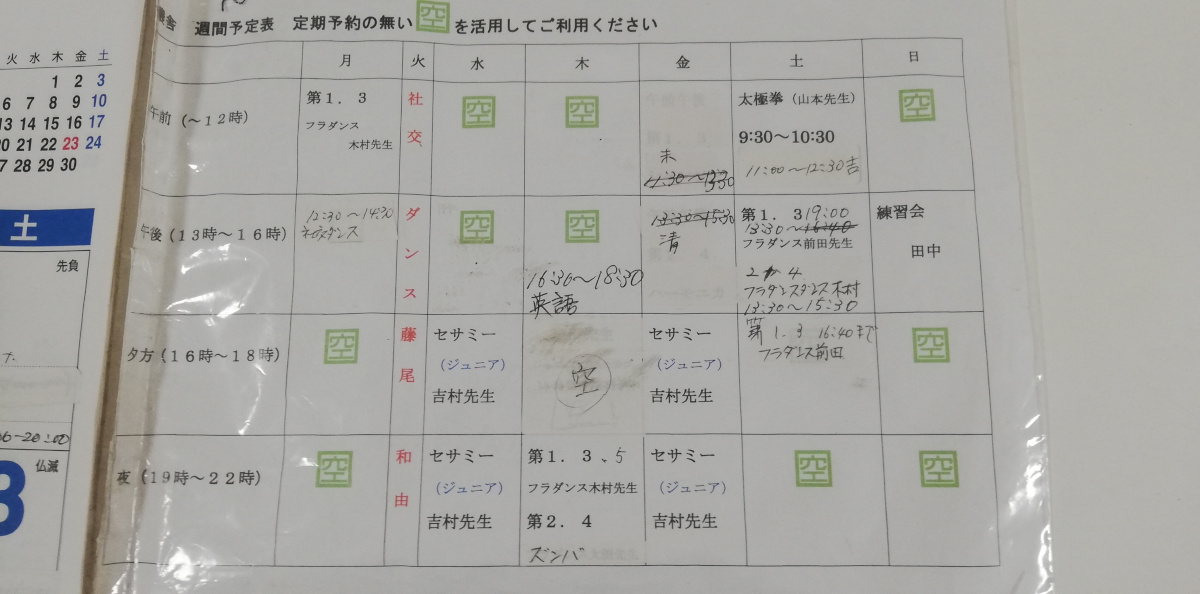 週間予定表 定期予約の無い 空 を活用してご利用ください
月 火 水 木 金 土 日
午前(～12時)
第1．3
フラダンス
木村先生
空
空
木
太極拳(山本先生)
9:30～10:30
11:00～12:30吉
空
社交ダンス藤尾和由
午後(13時～16時)
12:30～14:30
空
空
16:30～18:30
英語
13:30～15:30
清
第1．3 19:00
13:30～16:40
フラダンス前田先生
2か4
フラダンスダンス木村
13:30～15:30
練習会
田中
夕方(16時～18時)
空
セサミー
(ジュニア)
吉村先生
空
セサミー
(ジュニア)
吉村先生
第1.3 16:40まで
フラダンス前田
空
夜(19時～22時)
空
セサミー
(ジュニア)
吉村先生
第1．3、5
フラダンス木村先生
第2．4
ズンバ
セサミー
(ジュニア)
吉村先生
空
空
火 水 木 金 土
1 2 3
6 7 8 9 10
13 14 15 16 17
20 21 22 23 24
27 28 29 30
土
先負
-20:00
仏滅